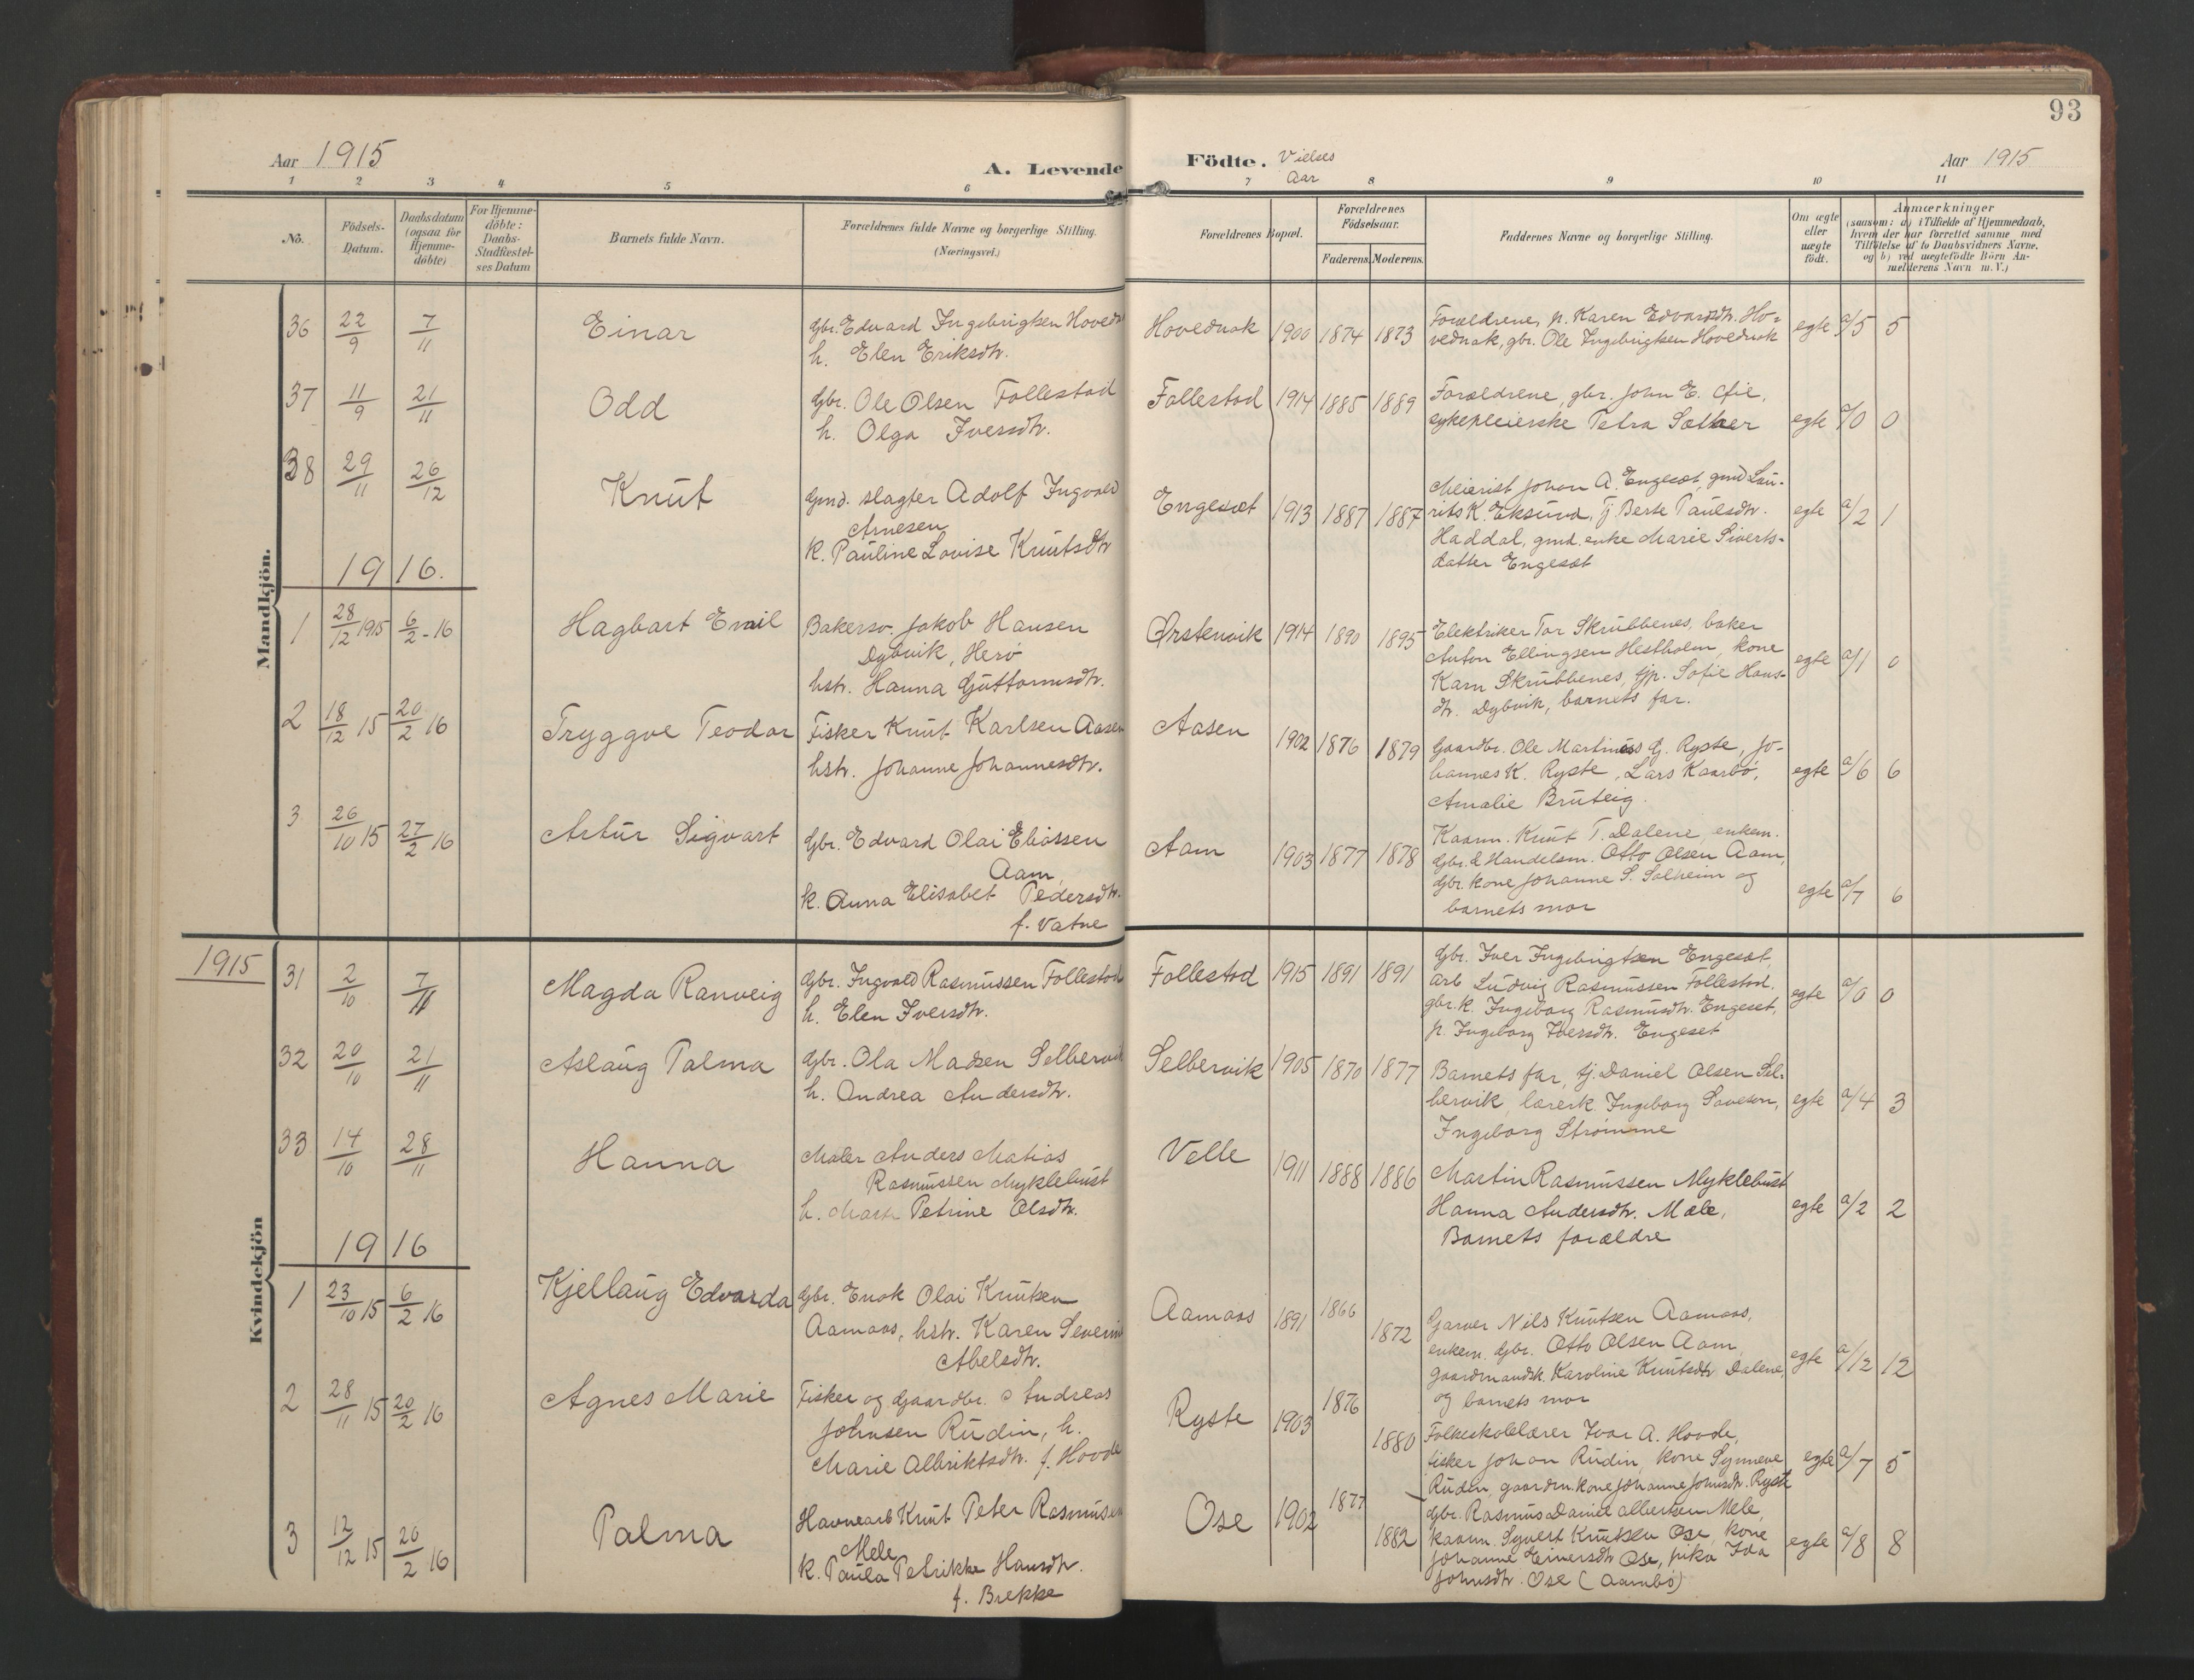 93
Aar 1915
A. Levende Födte.
Vielses Aar
Aar 1915
1 2 3 4 5 6 7 8 9 10 11
No.
Födsels-Datum.
Daabsdatum (ogsaa for Hjemme-döbte)
For Hjemme-döbte: Daabs-Stadfæstel-ses Datum
Barnets fulde Navn.
Forældrenes fulde Navne og borgerlige Stilling.
(Næringsvei.)
Forældrenes Bopæl.
Forældrenes Födselsaar.
Faderens. Moderens.
Faddernes Navne og borgerlige Stilling.
Om ægte eller uægte födt.
Anmærkninger
(saasom: a) i Tilfælde af Hjemmedaab,
hvem der har forrettet samme med
Tilföielse af to Daabsvidners Navne.
og b) ved uægtefödte Börn An-
melderens Navn m. V.)
Mandkjön.
36 22/9 7/11 Einar Gbr. Edvard Ingebrigtsen
h. Elen Eriksdtr.
Hovednak 1900 1874 1873 Forældrene, p. Karen Edvardsdtr. Ho-
vednak, gbr. Ole Ingebrigtsen Hovednak
egte a/5 5
37 11/9 21/11 Odd Gbr. Ole Olsen Follestad
h. Olga Iversdtr.
Follestad 1914 1885 1889 Forældrene, gbr. John E.
sykepleierske Petra Sæther
egte a/0 0
38 29/11 26/12 Knut Gmd. slagter Adolf Ingvald
Arnesen
k. Pauline Lovise Knutsdtr
Engesæt 1913 1887 1887 Meierist Johan A. Engesæt, gmd Lau-
rits K. Eksund, Tj Berte Paulsdtr.
Haddal, gmd. enke Marie Siverts-
datter Engesæt
egte a/2 1
1916.
1 28/12 1915 6/2-16 Hagbart Emil Bakersv. Jakob Hansen
Dybvik, Herø
hstr. Hanna Guttormsdtr.
Ørstenvik 1914 1890 1895 Elektriker Tor Skrubbenes, baker
Anton Ellingsen Hestholm, kone
Karn Skrubbenes, tjp. Sofie Hans-
dtr. Dybvik, barnets far.
egte a/1 0
2 18/12 15 20/2 16 Tryggve Teodor Fisker Knut Karlsen Aasen
hstr. Johanne Johannesdtr.
Aasen 1902 1876 1879 Gaardbr. Ole Martinus G. Ryste, Jo-
hannes K. Ryste, Lars Kaarbø,
Amalie Bruteig.
egte a/6 6
3 26/10 15 27/2 16 Artur Sigvart Gbr. Edvard Olai Eliassen
Aam,
k. Anna Elisabet Pedersdtr.
f. Vatne
Aam 1903 1877 1878 Kaarm. Knut T. Dalene, enkem.
Gbr. & Handelsm. Otto Olsen Aam,
Gbr. kone Johanne S. Solheim og
barnets mor
egte a/7 6
Kvindekjön
1915
31 2/10 7/11 Magda Ranveig Gbr. Ingvald Rasmussen Follestad
h. Elen Iversdtr.
Follestad 1915 1891 1891 Gbr. Iver Ingebrigtsen Engesæt,
arb Ludvig Rasmussen Follestad,
gbr. k. Ingeborg Rasmusdtr. Engeset,
p. Ingeborg Iversdtr. Engeset
egte a/0 0
32 20/10 21/11 Aslaug Palma Gbr. Ola Madsen Selbervik
h. Andrea Andersdtr.
Selbervik 1905 1870 1877 Barnets far, tj. Daniel Olsen Sel-
bervik, lærerk. Ingeborg
Ingeborg Strømme
egte a/4 3
33 14/10 28/11 Hanna Maler Anders Matias
Rasmussen Myklebust
h. Petrine Olsdtr.
Velle 1911 1888 1886 Martin Rasmussen Myklebust
Hanna Andersdtr. Mæle,
Barnets forældre
egte a/2 2
1916
1 23/10 15 6/2 16 Kjellaug Edvarda Gbr. Enok Olai Knutsen
Aamaas, hstr. Karen
Abelsdtr.
Aamaas 1891 1866 1872 Garver Nils Knutsen Aamaas,
enkem. Gbr. Otto Olsen Aam,
Gaardmandsk. Karoline Knutsdtr Dalene,
og barnets mor
egte a/12 12
2 28/11 15 20/2 16 Agnes Marie Fisker og Gaardbr. Andreas
Johnsen Rudin, h.
Marie Albriktsdtr. f. Hovde
Ryste 1903 1876 1880 Folkeskolelærer Ivar A. Hovde,
fisker Johan Rudin, kone Synneve
Rudin, gaardm. kone Johanne Johnsdtr. Ryste
egte a/7 5
3 12/12 15 20/2 16 Palma Havnearb Knut Peter Rasmussen
Mele
k. Paula Petrikke Hansdtr.
f. Brekke
Ose 1902 1877 1882 Gbr. Rasmus Daniel Albertsen Mele,
kaarm. Syvert Knutsen Ose, kone
Johanne Einersdtr Ose, pika Ida
Johnsdtr. Ose (Aambø)
egte a/8 8